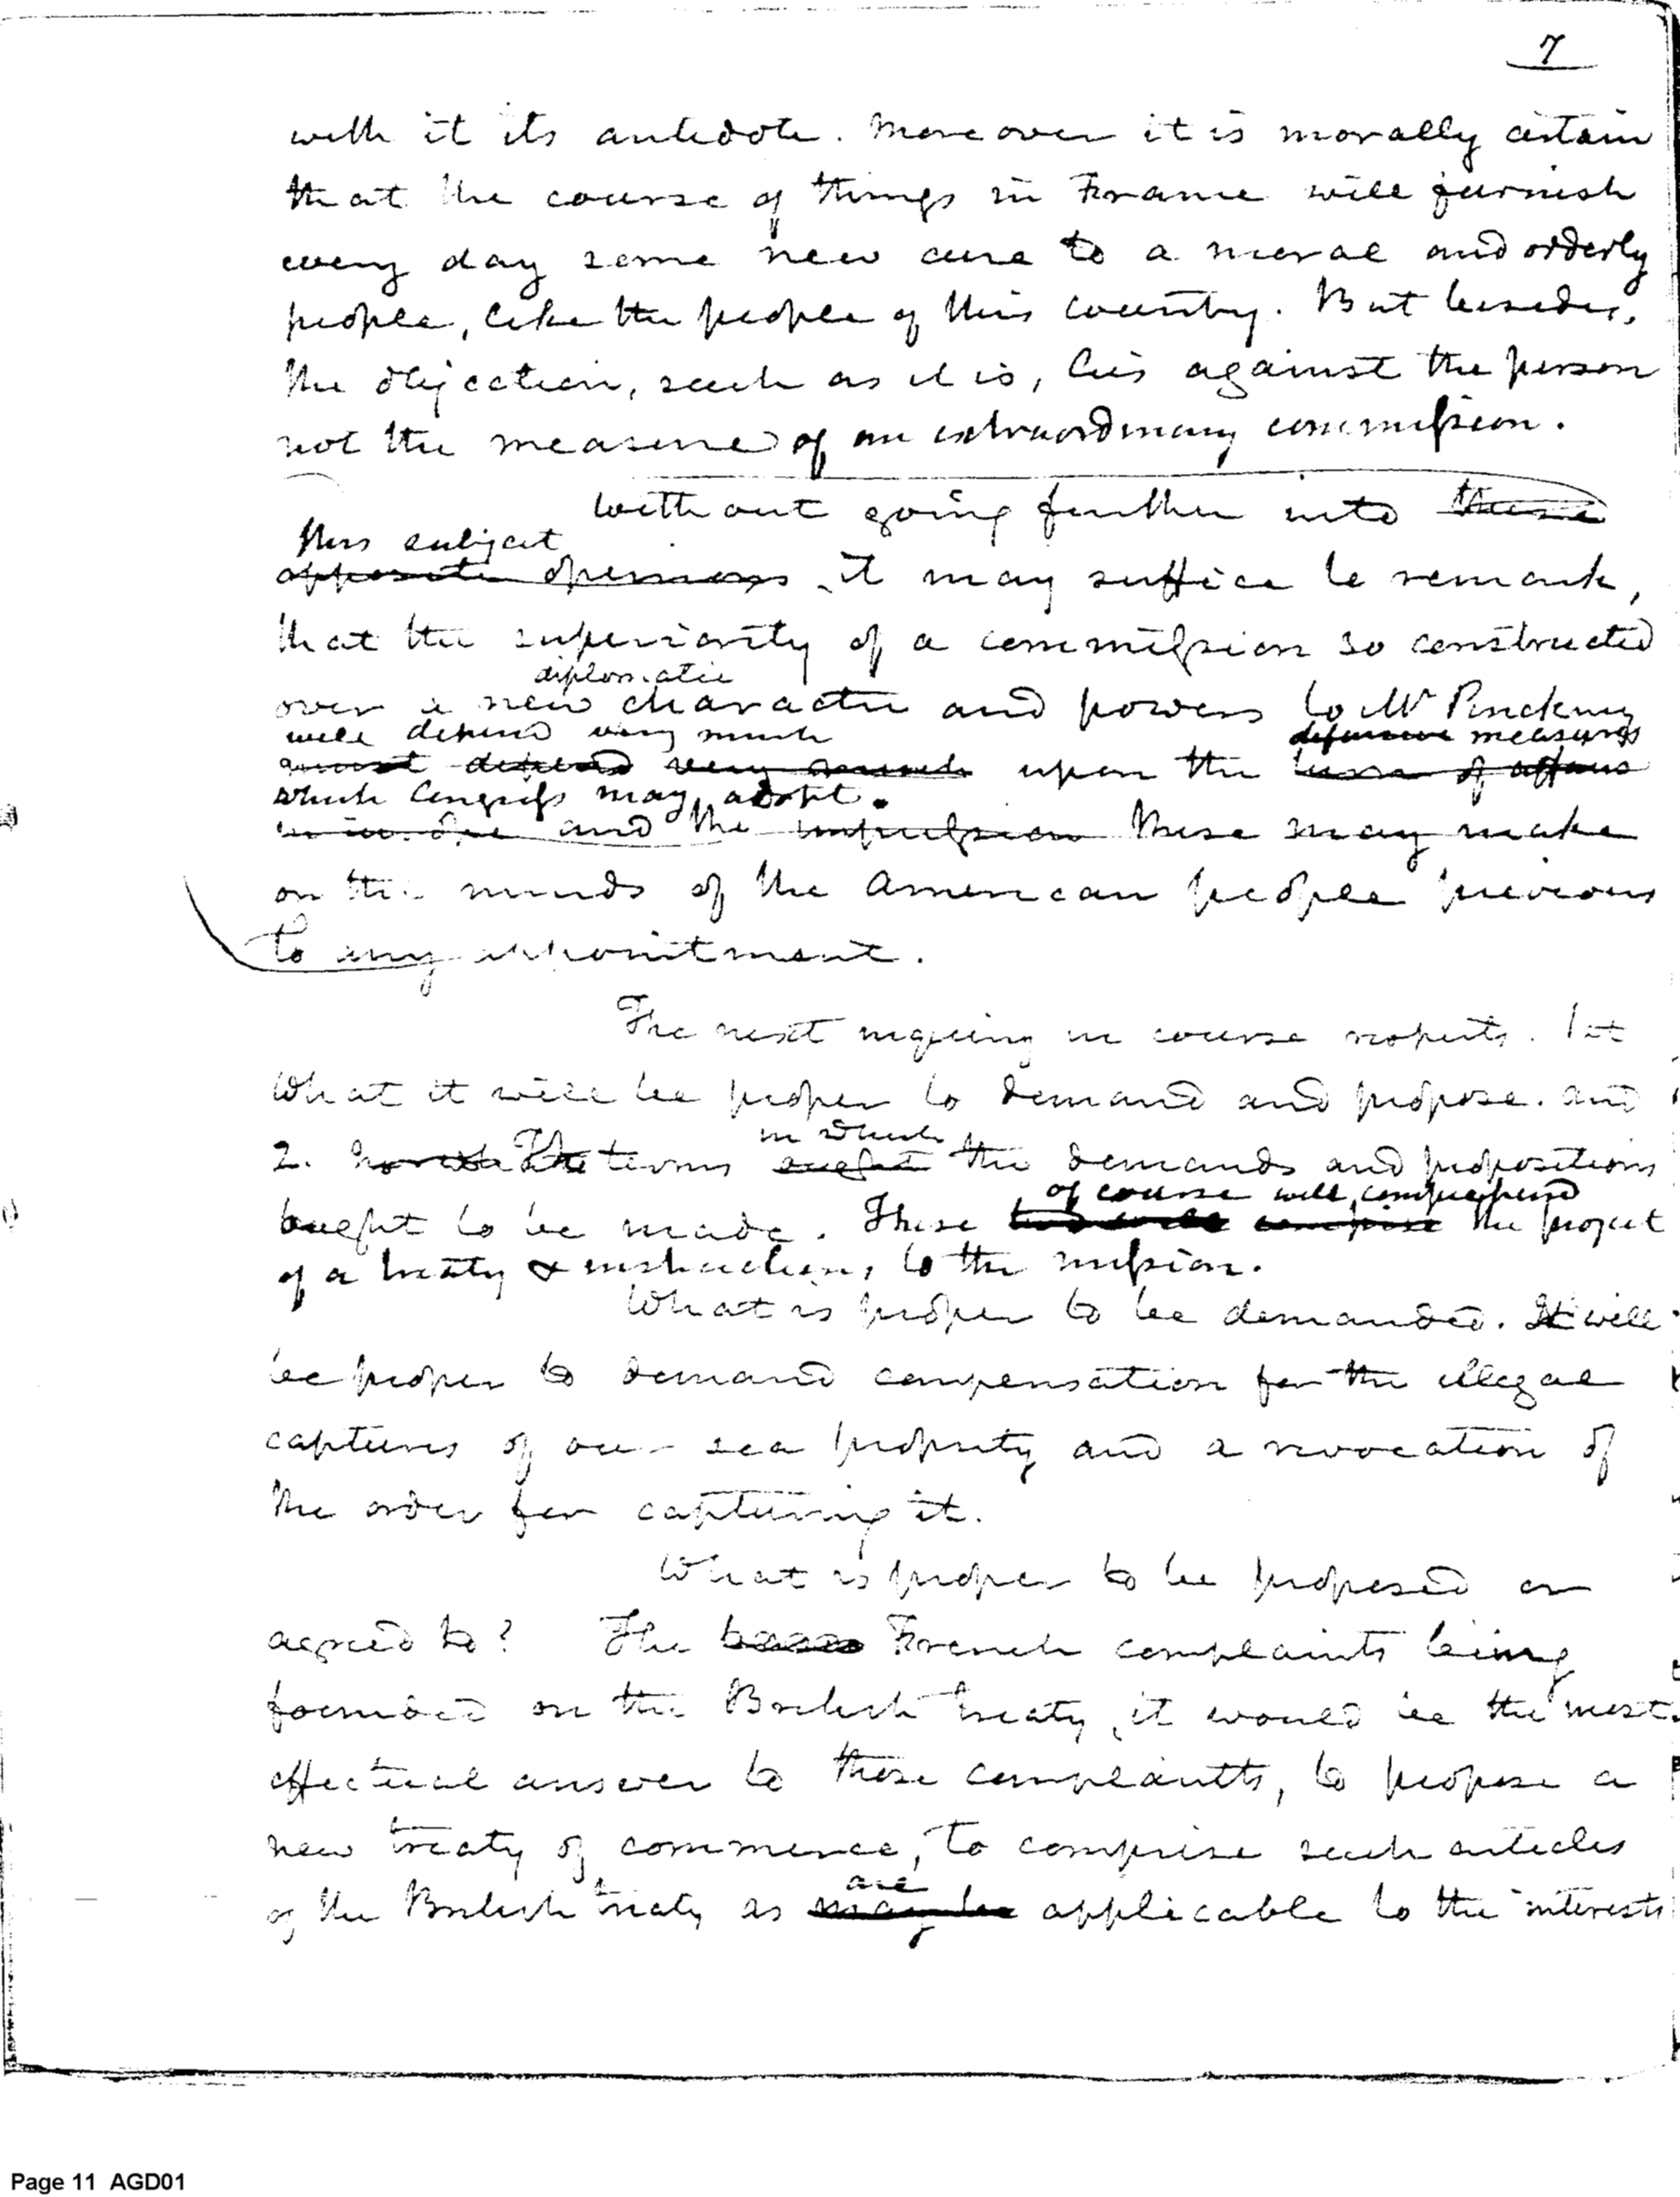 7
with it its antidote. Moreover it is morally certain
that the course of things in France will furnish
every day some new cure to a moral and orderly
people, like the people of this country. But besides,
the objection, such as it is, lies against the person
not the measure of an extraordinary commission.
Without going further into these
this subject
opposite opinions it may suffice to remark,
that the superiority of a commission so constructed
diplomatic
over a new character and powers to Mr Pinckney
will depend very much
defensive measures
must depend very much upon the turn of affairs
which Congress may adopt.
and the impulsion these may make
on the minds of the American people previous
to any appointment.
The next inquiry in course respects. 1st
What it will be proper to demand and propose. and
in which
2. The terms the demands and propositions
ought to be made. These the project
of course will comprehend
of a treaty & instructions to the mission.
What is proper to be demanded. It will
be proper to demand compensation for the illegal
captures of our sea property and a revocation of
the order for capturing it.
What is proper to be proposed or
agreed to? The French complaints being
founded on the British treaty, it would be the most
effectual answer to those complaints, to propose a
new treaty of commerce, to comprise such articles
are
of the British treaty as may be applicable to the interests
Page 11 AGD01